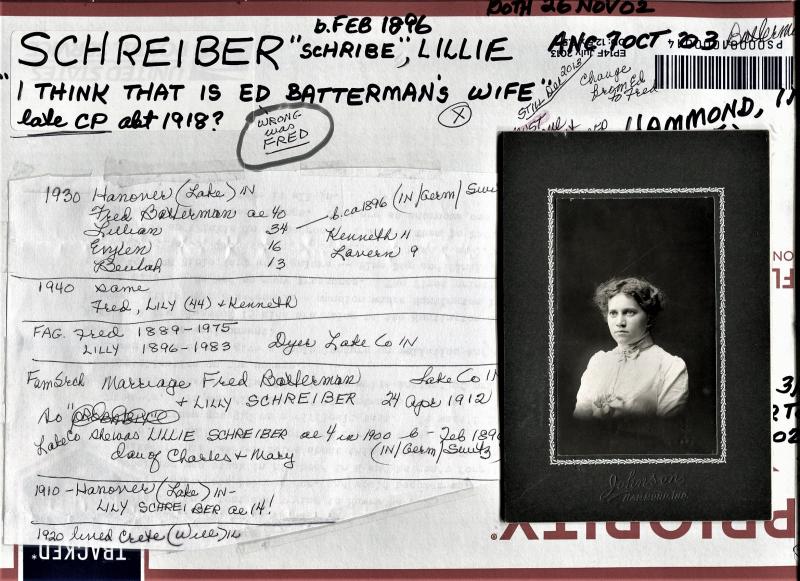 b. FEB 1896
BOTH 26 NOV 02
SCHREIBER "SCHRIBE", LILLIE
ANC 7 OCT 2013
"I THINK THAT IS ED BATTERMAN'S WIFE"
late CP abt 1918?
WRONG
was
FRED
X
STILL Dec 2013
Change
from Ed
to Fred
HAMMOND, IN
1930 Hanover (Lake) IN
Fred Batterman ae 40
Lillian 34 b. ca 1896 (IN/Germ/Switz
Evylen 16 Kenneth 11
Beulah 13 Lavern 9
1940 same
Fred, LILY (44) + Kenneth
FAG. Fred 1889-1975
LILLY 1896-1983 Dyer Lake Co IN
FamSrch Marriage Fred Batterman Lake Co IN
+ LILLY SCHREIBER 24 Apr 1912
So
Lake Co she was LILLIE SCHREIBER ae 4 in 1900 b - Feb 1896
Dau of Charles + Mary (IN/Germ/Switz
1910 - Hanover (Lake) IN -
LILY SCHREIBER ae 14!
1920 lived Crete (Will) IL
Johnson
HAMMOND, IND.
TRACKED
PRIORITY